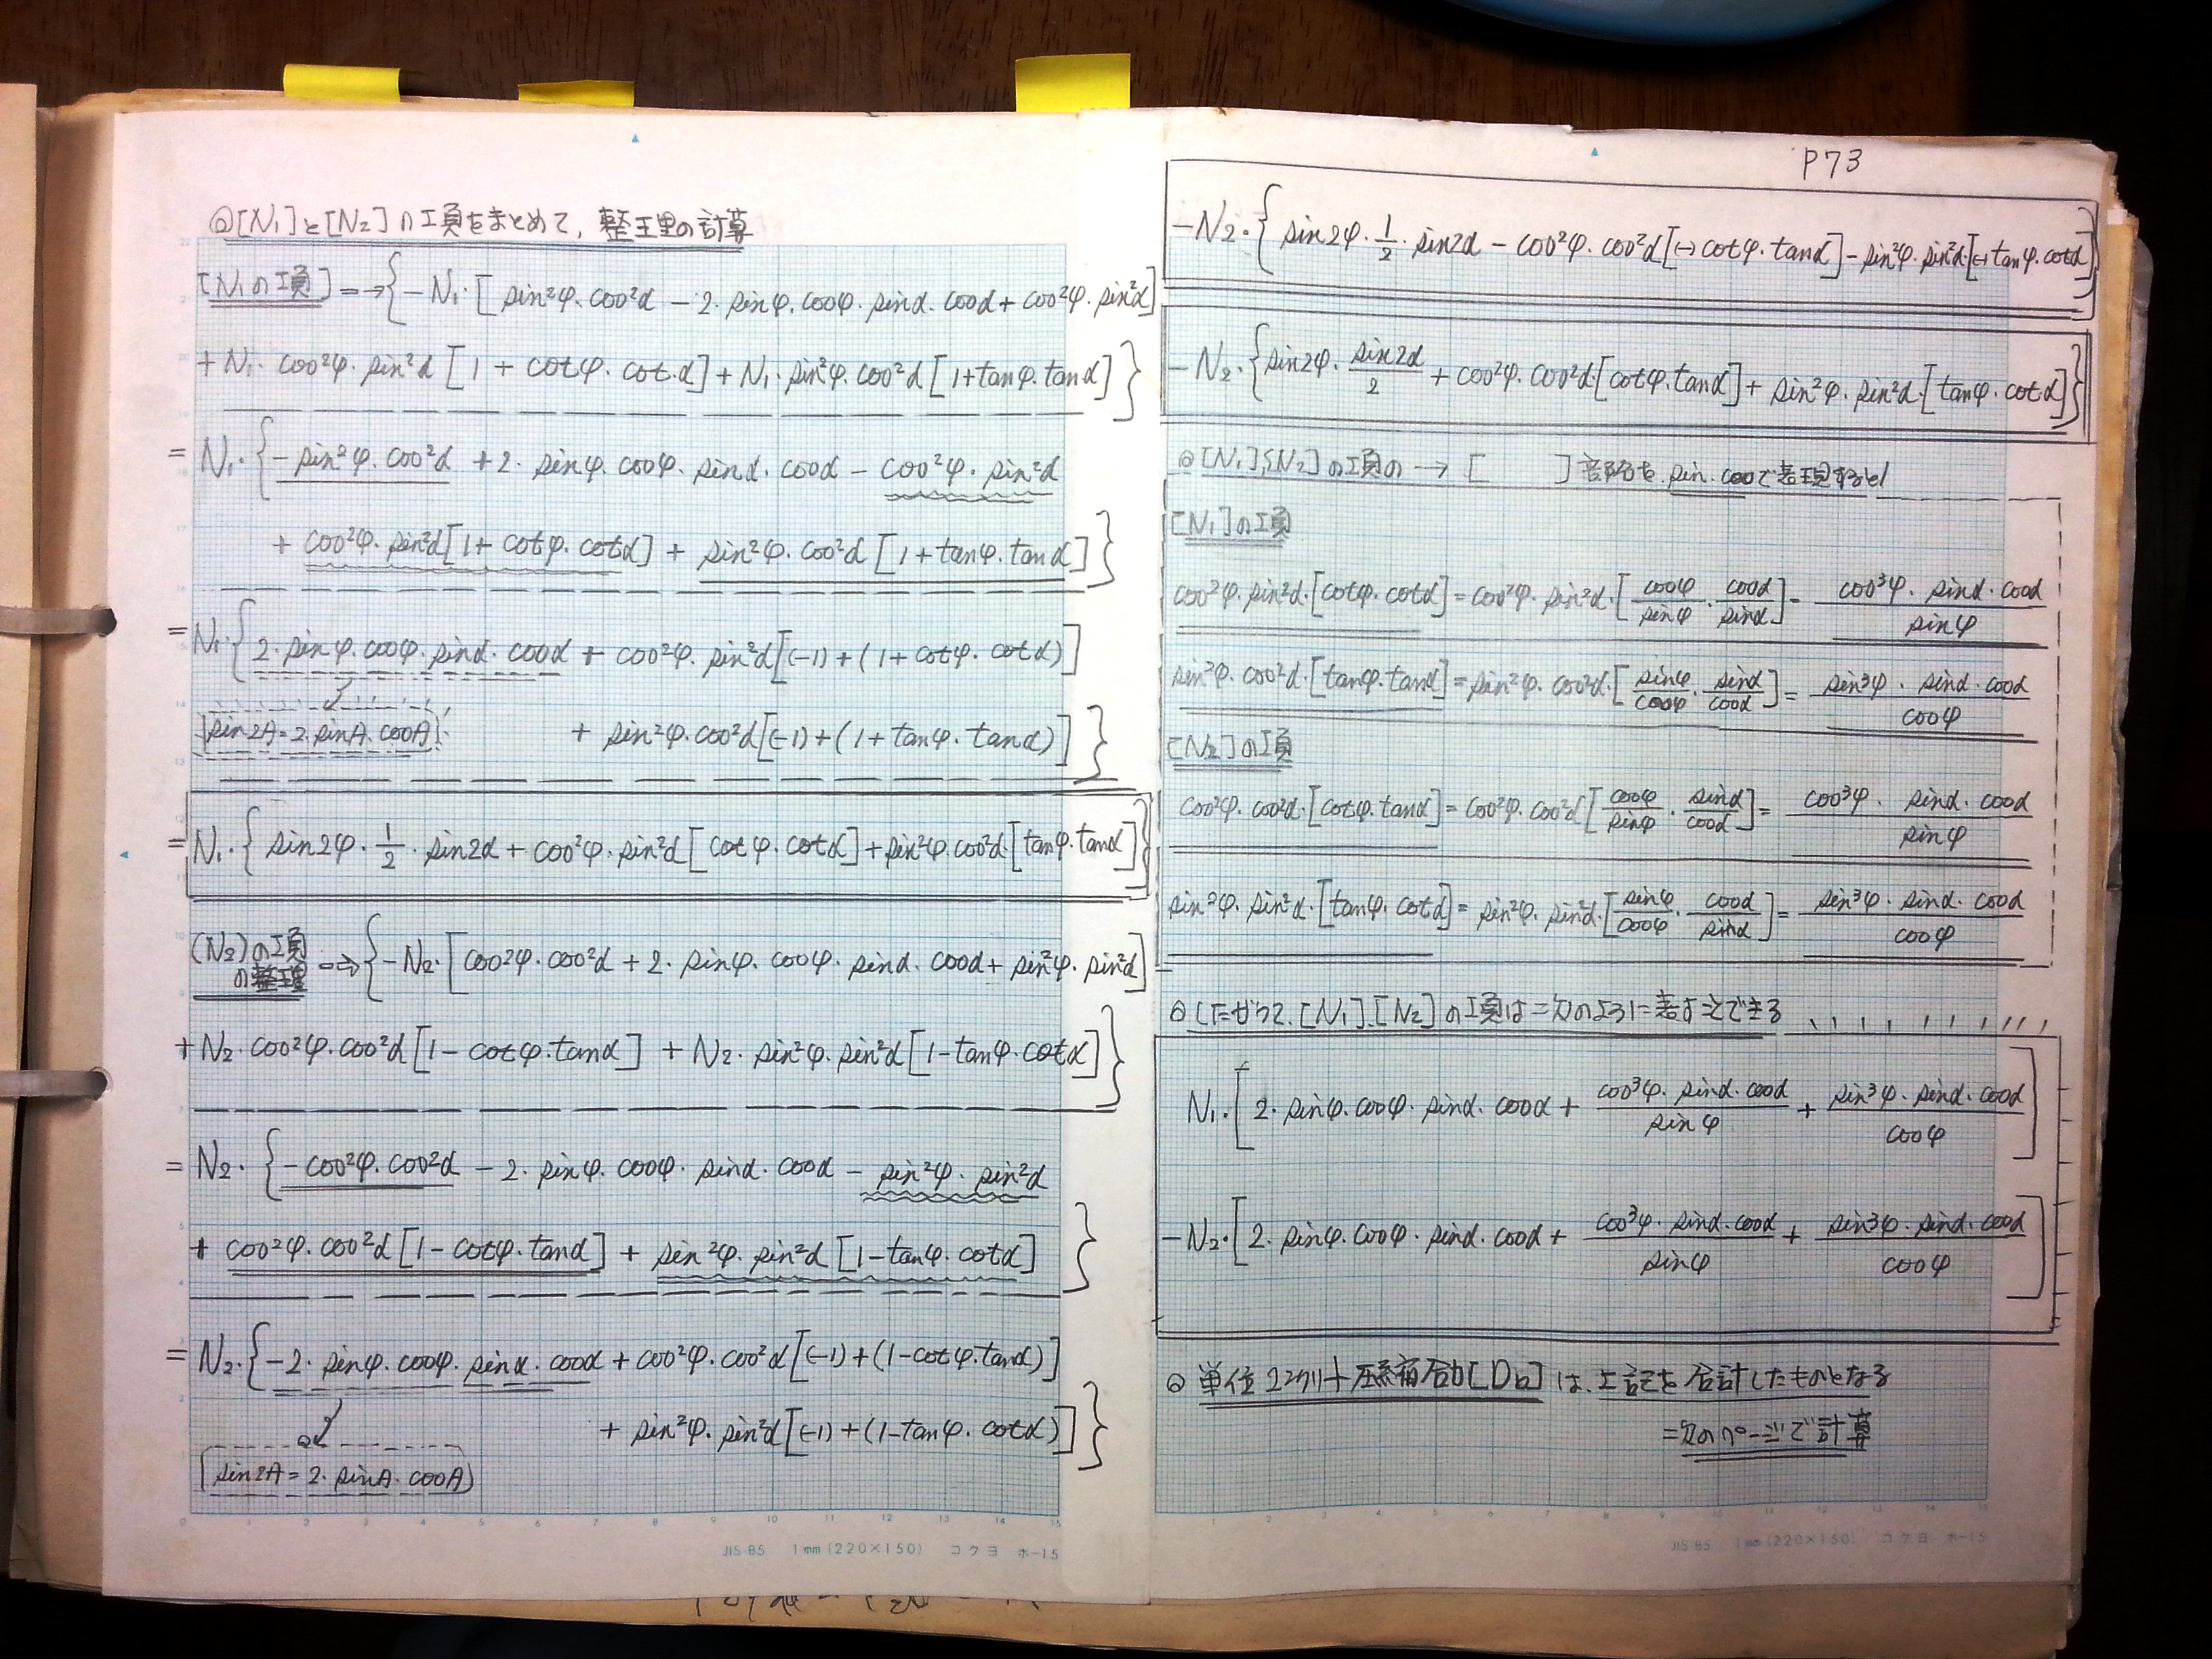 ◎[N₁]と[N₂]の項をまとめて、整理の計算
[N₁の項]=→{-N₁·[sin²φ·cos²α-2·sinφ·cosφ·sinα·cosα+cos²φ·sin²α]
+N₁·cos²φ·sin²α[1+cotφ·cotα]+N₁·sin²φ·cos²α[1+tanφ·tanα]}
=N₁·{-sin²φ·cos²α+2·sinφ·cosφ·sinα·cosα-cos²φ·sin²α
+cos²φ·sin²α[1+cotφ·cotα]+sin²φ·cos²α[1+tanφ·tanα]}
=N₁·{2·sinφ·cosφ·sinα·cosα+cos²φ·sin²α[(-1)+(1+cotφ·cotα)]
(sin2A=2·sinA·cosA) +sin²φ·cos²α[(-1)+(1+tanφ·tanα)]}
=N₁·{sin2φ·1/2·sin2α+cos²φ·sin²α[cotφ·cotα]+sin²φ·cos²α·[tanφ·tanα]}
(N₂)の項
の整理 ⇒{-N₂·[cos²φ·cos²α+2·sinφ·cosφ·sinα·cosα+sin²φ·sin²α]
+N₂·cos²φ·cos²α[1-cotφ·tanα]+N₂·sin²φ·sin²α[1-tanφ·cotα]}
=N₂·{-cos²φ·cos²α-2·sinφ·cosφ·sinα·cosα-sin²φ·sin²α
+cos²φ·cos²α[1-cotφ·tanα]+sin²φ·sin²α[1-tanφ·cotα]}
=N₂·{-2·sinφ·cosφ·sinα·cosα+cos²φ·cos²α[(-1)+(1-cotφ·tanα)]
+sin²φ·sin²α[(-1)+(1-tanφ·cotα)]}
(sin2A=2·sinA·cosA)
JIS B5 1mm(220×150) コクヨ ホ-15
P73
-N₂·{sin2φ·1/2·sin2α-cos²φ·cos²α[(-)cotφ·tanα]-sin²φ·sin²α·[(-)tanφ·cotα]}
-N₂·{sin2φ·sin2α/2+cos²φ·cos²α·[cotφ·tanα]+sin²φ·sin²α·[tanφ·cotα]}
◎[N₁],[N₂]の項の→[ ]部分を sin·cosで表現すると
[N₁]の項
cos²φ·sin²α·[cotφ·cotα]=cos²φ·sin²α·[cosφ/sinφ·cosα/sinα]=cos³φ·sinα·cosα/sinφ
sin²φ·cos²α·[tanφ·tanα]=sin²φ·cos²α·[sinφ/cosφ·sinα/cosα]=sin³φ·sinα·cosα/cosφ
[N₂]の項
cos²φ·cos²α·[cotφ·tanα]=cos²φ·cos²α[cosφ/sinφ·sinα/cosα]=cos³φ·sinα·cosα/sinφ
sin²φ·sin²α·[tanφ·cotα]=sin²φ·sin²α·[sinφ/cosφ·cosα/sinα]=sin³φ·sinα·cosα/cosφ
◎したがって、[N₁],[N₂]の項は=次のように表すことできる
N₁·[2·sinφ·cosφ·sinα·cosα+cos³φ·sinα·cosα/sinφ+sin³φ·sinα·cosα/cosφ]
-N₂·[2·sinφ·cosφ·sinα·cosα+cos³φ·sinα·cosα/sinφ+sin³φ·sinα·cosα/cosφ]
◎単位コンクリート圧縮応力[Db]は、上記を合計したものとなる
=次のページで計算
JIS B5 1mm(220×150) コクヨ ホ-15